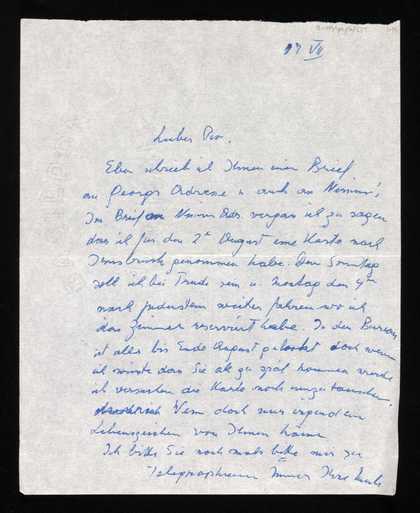 17 VII
Lieber
Eben schrieb ich Ihnen einen Brief
an Georgs Adresse u. auch an
Im Brief an vergas ich zu sagen
dass ich für den 2ten August eine Karte nach
Innsbruck genommen habe. Den Sonntag
soll ich bei Trude sein u. Montag den 4ten
nach weiter fahren wo ich
das Zimmer reserviert habe. In den Bureaus
ist alles bis Ende August doch wenn
ich wüsste dass Sie kommen werde
ich versuchen die Karte noch umzutauschen.
Wenn doch nur irgend ein
Lebenszeichen von Ihnen käme
Ich bitte Sie nochmals bitte mir zu
Telegraphieren Immer Ihre